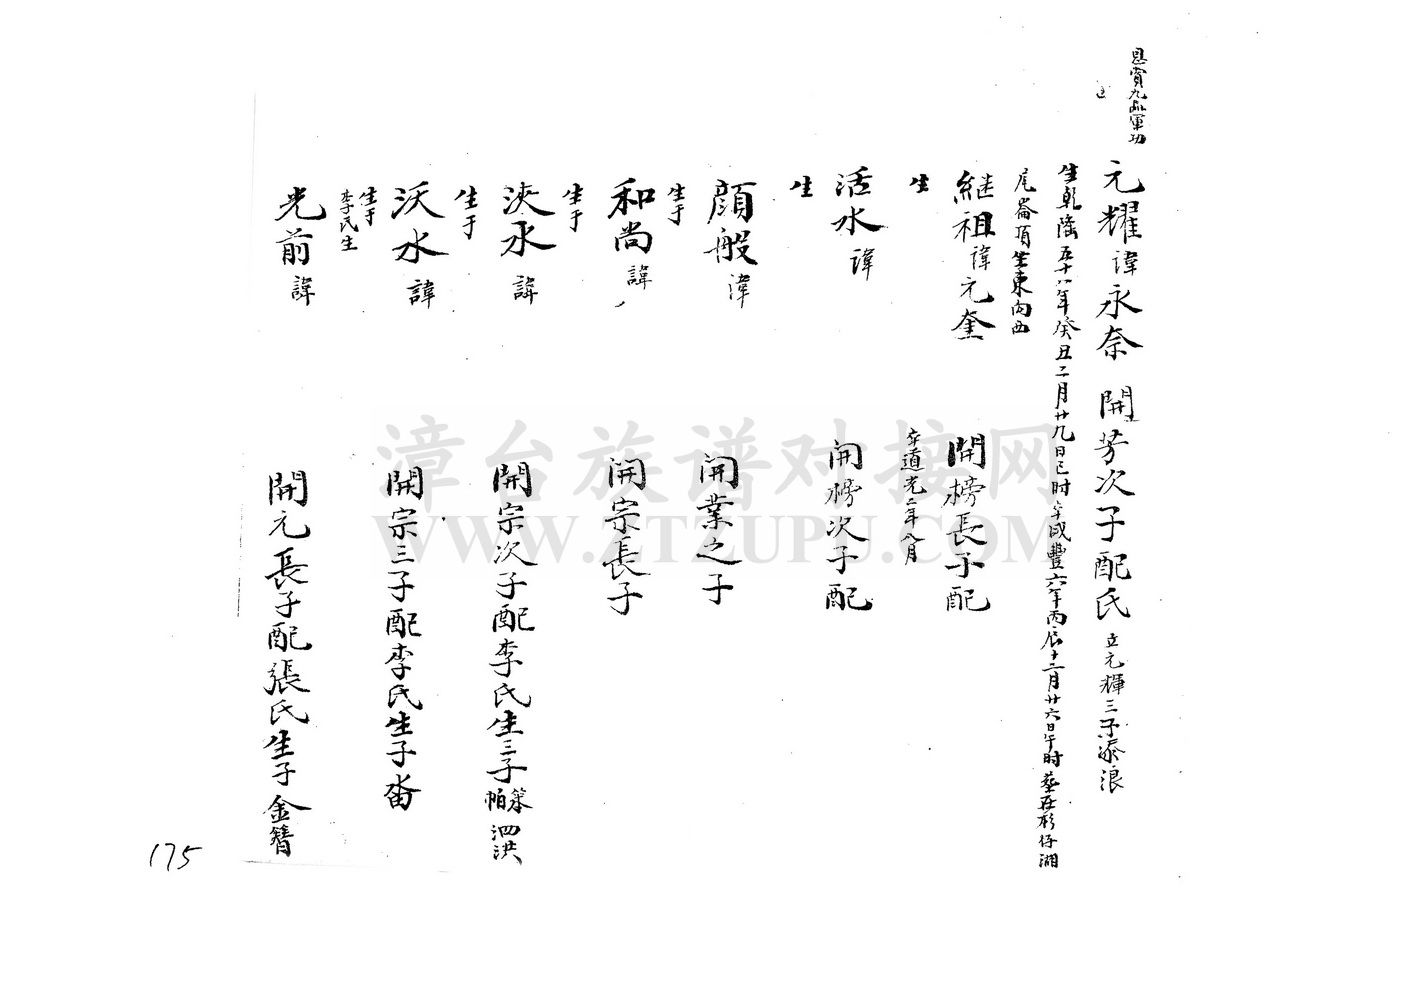 恩賞九品軍功
元耀諱永奈 開芳次子配氏 立元輝三子添浪
生乾隆五十八年癸丑二月廿九日巳时卒咸豐六年丙辰十二月廿六日午时葬在杉仔湖
尾崙頂坐東向西
継祖諱元奎 開榜長子配
生 卒道光二年八月
活水諱 開榜次子配
生
顔般諱 開業之子
生于
和尚諱 開宗長子
生于
浹水諱 開宗次子配李氏生三子 泗洪
生于
沃水諱 開宗三子配李氏生子畨
生于
李氏生
光前諱 開元長子配張氏生子金簪
175
漳台族谱对接网
WWW.ZTZUPU.COM